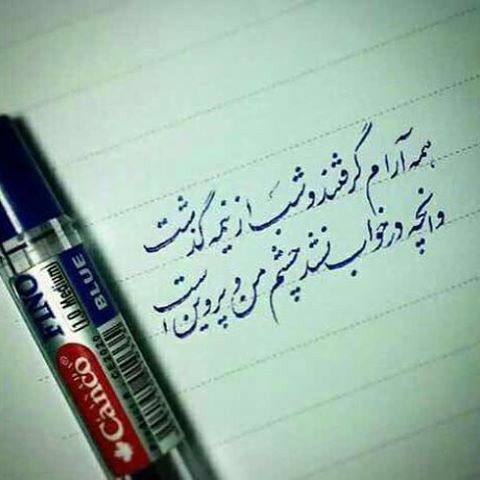 همه آرام گرفتند و شب از نیمه گذشت
وانچه در خواب نشد چشم من و پروین است
FINO
(1.0 Medium)
BLUE
Canco